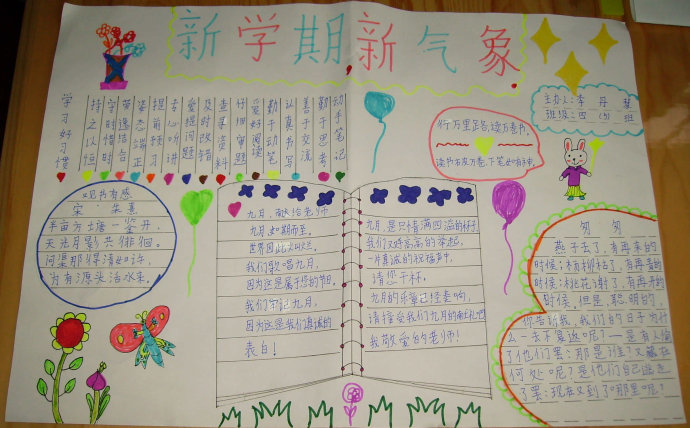 新学期新气象
主办人:李丹
班级:四(3)班
学习好习惯
持之以恒
守时惜时
姿态端正
提前预习
专心听讲
爱提问题
及时改错
查集资料
仔细审题
爱好阅读
勤于动笔
认真书写
善于交流
勤于思考
动手笔记
行万里路,读万卷书。
读书破万卷,下笔如有神。
观书有感
宋:朱熹
半亩方塘一鉴开,
天光月影共徘徊。
问渠那得清如许,
为有源头活水来。
九月,献给老师
九月如期而至。
世界因此
我们歌唱九月,
因为这是属于您的节日。
我们牢记九月,
因为这是我们真诚的
表白!
九月是只情满四溢的杯子
我们双手高高的举起,
一片真诚的祝福声中,
请您干杯。
九月的乐章已经奏响,
请接受我们九月的献礼吧
我敬爱的老师!
匆匆
燕子去了,有再来的
时候;杨柳枯了,有再青的
时候;桃花谢了,有再开的
时候。但是,聪明的,
你告诉我,我们的日子为什
么一去不复返呢?—是有人偷
了他们罢:那是谁?又藏在
何处呢?是他们自己逃走
了罢:现在又到了哪里呢?